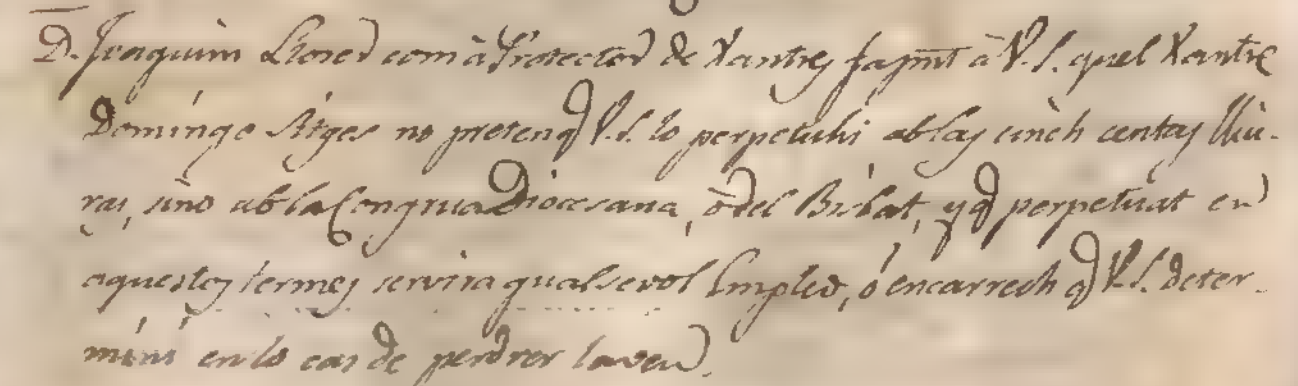 D. Joaquim Llored com à Protector de Xantres fa pnt à V.S. quel Xantre
Domingo Sitges no preten q V.S. lo perpetuhi ab las cinch centas lliu-
ras, sino ab la Congrua Diocesana, ò del Bisbat, y q perpetuat en
aquestos termes servira qualsevol Empleo, ó encarrech q V.S. deter-
mini en lo cas de perdrer la veu.